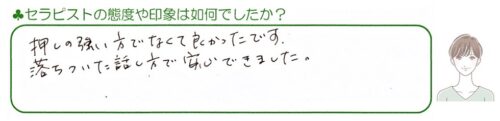 ♣セラピストの態度や印象は如何でしたか？
押しの強い方でなくて良かったです.
落ちついた話し方で安心できました。